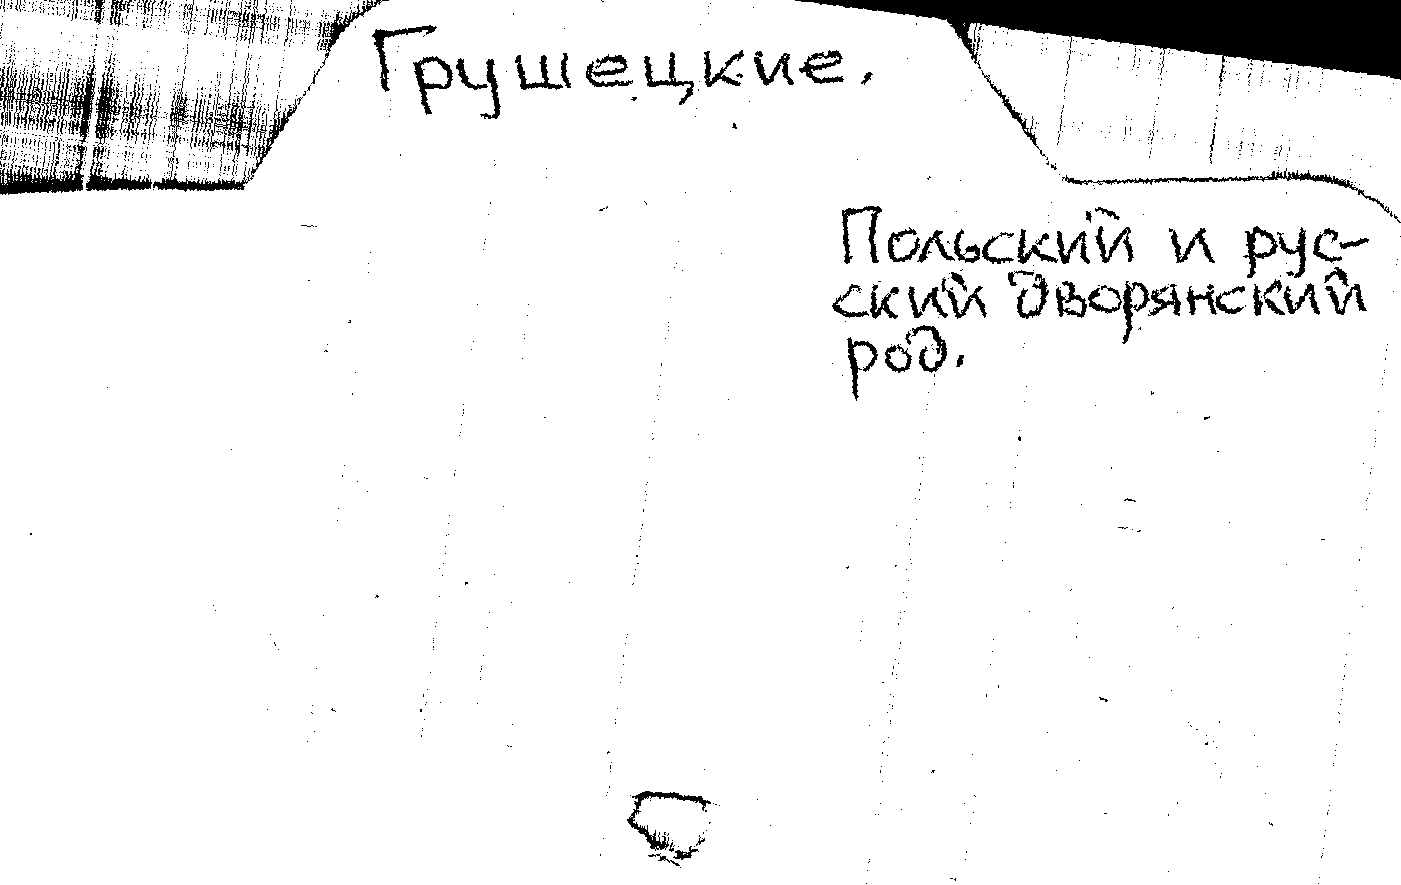 Грушецкие.
Польский и рус-
ский дворянский
род.